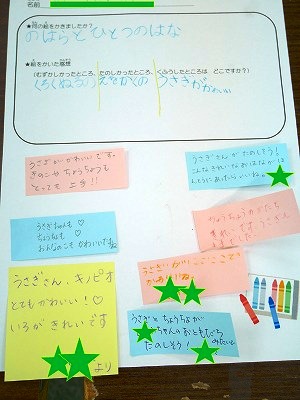 名前
★何の絵をかきましたか？
のはらとひとつのはな
★絵をかいた感想
(むずかしかったところ、たのしかったところ、くふうしたところは どこですか?)
くろくぬるの えをかくの うさぎががかわいい
うさぎがかわいいです。
きのこや ちょうちょうも
とっても 上手!!
うさぎさんが たのしそう!
こんなきれいなおはながほ
んとうにあったらいいね。
うさぎちゃんも♡
ちょうちょも♡
おんなのこも かわいいですね
ちょうちょうがかたち
うさぎさん、キノピオ
とてもかわいい!♡
いろが きれいです
より
うさぎと ちょうちょが
ちゃんのおともだち
たのしそう! みたいね